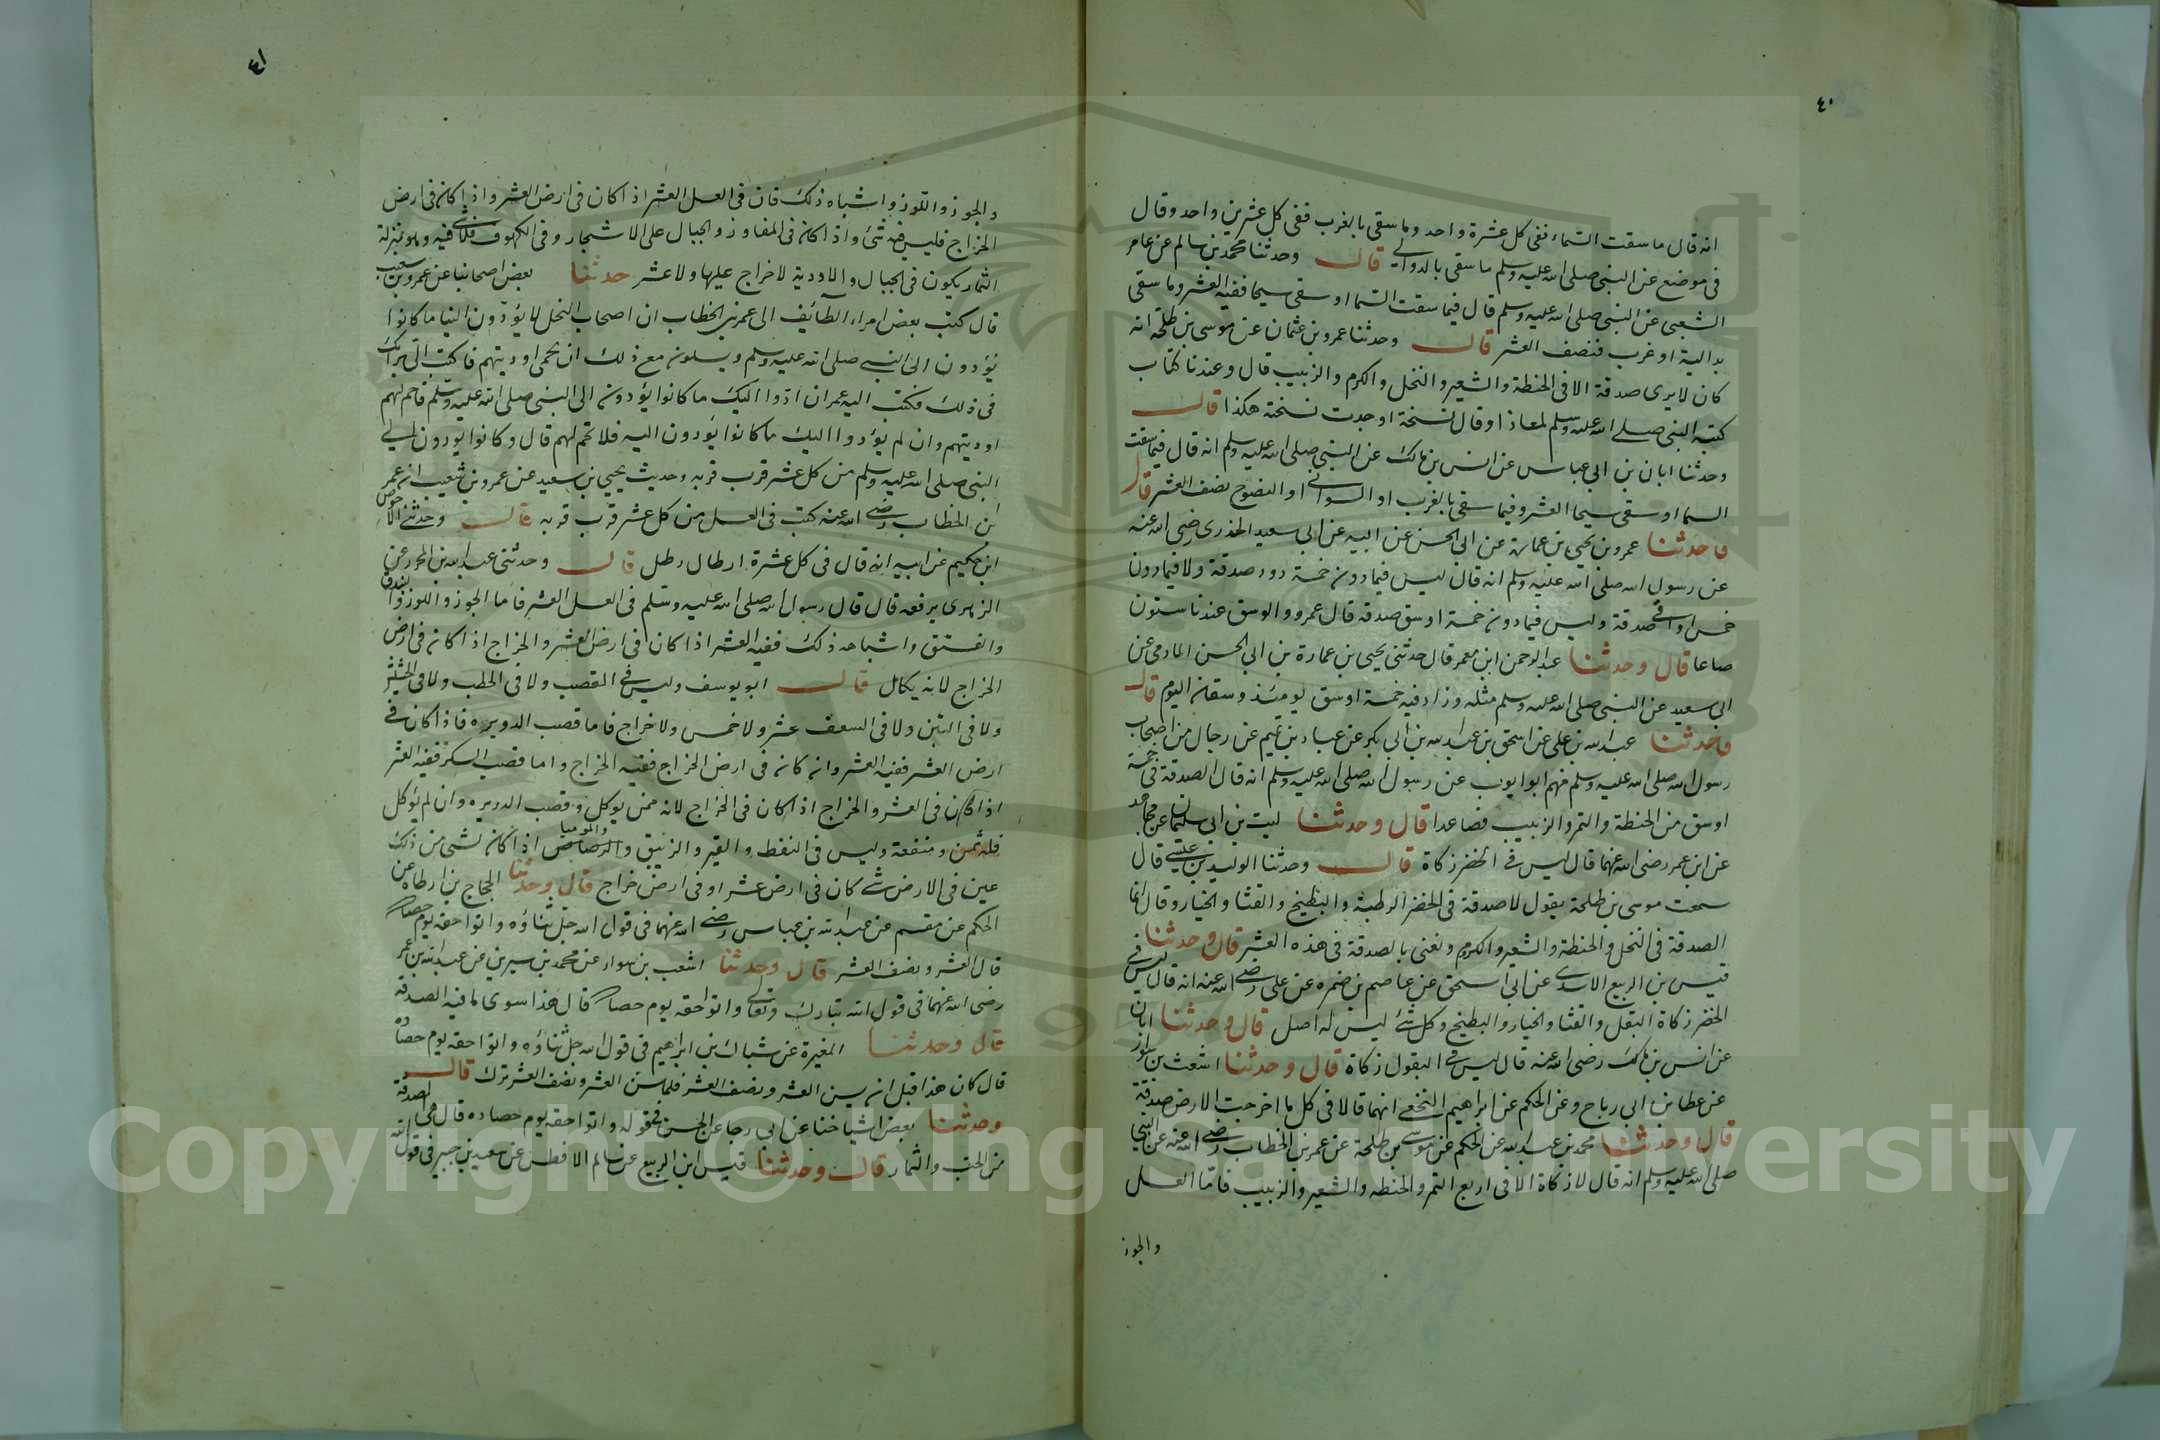 ٤٠
انه قال ما سقت السماء ففى كل عشرة واحد وما سقى بالغرب ففى كل عشرين واحد وقال
فى موضع عن النبى صلى الله عليه وسلم ما سقى بالدوالى قال وحدثنا محمد بن سالم عن عامر
الشعبى عن النبى صلى الله عليه وسلم قال فيما سقت السما او سقى سيحا ففيه العشر وما سقى
بدالية او غرب فنصف العشر قال وحدثنا عمرو بن عثمان عن موسى بن طلحة انه
كان لا يرى صدقة الا فى الحنطة والشعير والنخل والكرم والزبيب قال وعندنا كتاب
كتبه النبى صلى الله عليه وسلم لمعاذ او قال نسخة او وجدت نسخة هكذا قال
وحدثنا ابان بن ابى عياس عن انس بن مالك عن النبى صلى الله عليه وسلم انه قال فيما سقت
السما او سقى سيحا العشر وفيما سقى بالغرب او السوانى او النضوح نصف العشر قال
وحدثنا عمرو بن يحيى بن عمارة عن ابى الحسن عن ابيه عن ابى سعيد الخدرى رضى الله عنه
عن رسول الله صلى الله عليه وسلم انه قال ليس فيما دون خمسة دود صدقة ولا فيما دون
خمس اواقى صدقة وليس فيما دون خمسة اوسق صدقة قال عمرو والوسق عندنا ستون
صاعا قال وحدثنا عبد الرحمن ابن معمر قال حدثنى يحيى بن عمارة بن ابى الحسن المازمى عن
ابى سعيد عن النبى صلى الله عليه وسلم مثله وزاد فيه خمسة اوسق يومئذ وسقان اليوم قال
وحدثنا عبد الله بن على عن اسحق بن عبد الله بن ابى بكر عن عباد بن تميم عن رجال من اصحاب
رسول الله صلى الله عليه وسلم منهم ابو ايوب عن رسول الله صلى الله عليه وسلم انه قال الصدقة فى خمسة
اوسق من الحنطة والتمر والزبيب فصاعدا قال وحدثنا ليث بن ابى سليمان عن مجاهد
عن ابن عمر رضى الله عنهما قال ليس فى الخضر زكاة قال وحدثنا الوليد بن عيسى قال
سمعت موسى بن طلحة يقول لا صدقة فى الخضر الرطبة والبطيخ والقثا والخيار وقال انما
الصدقة فى النخل والحنطة والشعير والكرم ونعنى بالصدقة فى هذه العشر قال وحدثنا
قيس بن الربيع الاسدى عن ابى اسحق عن عاصم بن ضمره عن على رضى الله عنه انه قال ليس فى
الخضر زكاة البقل والقثا والخيار والبطيخ وكل شئ ليس له اصل قال وحدثنا ابان
عن انس بن مالك رضى الله عنه قال ليس فى البقول زكاة قال وحدثنا اشعث بن سوار
عن عطا بن ابى رباح وعن الحكم عن ابراهيم النخعى انهما قالا فى كل ما اخرجت الارض صدقة
قال وحدثنا محمد بن عبد الله عن الحكم عن موسى بن طلحة عن عمر بن الخطاب رضى الله عنه عن النبى
صلى الله عليه وسلم انه قال لا زكاة الا فى اربع التمر والحنطه والشعير والزبيب فاما العسل
والجوز
٤١
والجوز واللوز واشباه ذلك فان فى العسل العشر اذا كان فى ارض العشر واذا كان فى ارض
الخراج فليس فيه شئ واذا كان فى المفاوز والجبال على الاشجار وفى الكهوف فلا شئ فيه وهو بمنزلة
الثمار يكون فى الجبال والاودية لا خراج عليها ولا عشر حدثنا بعض اصحابنا عن عمرو بن شعيب
قال كتب بعض امراء الطائف الى عمر بن الخطاب ان اصحاب النخل لا يؤدون الينا ما كانوا
يؤدون الى النبى صلى الله عليه وسلم ويسلونه مع ذلك ان يحمى اوديتهم فاكتب الى برايك
فى ذلك فكتب اليه عمر ان ادوا اليك ما كانوا يؤدونه الى النبى صلى الله عليه وسلم فاحم لهم
اوديتهم وان لم يؤدوا اليك ما كانوا يؤدون اليه فلا تحم لهم قال وكانوا يودون الى
النبى صلى الله عليه وسلم من كل عشر قرب قربه وحديث يحيى بن سعيد عن عمرو بن شعيب ان عمر
بن الخطاب رضى الله عنه كتب فى العسل من كل عشر قرب قربه قال وحدثنى الاحوص
ابن حكيم عن ابيه انه قال فى كل عشرة ارطال رطل قال وحدثنى عبد الله بن المحرر عن
الزهرى يرفعه قال قال رسول الله صلى الله عليه وسلم فى العسل العشر فاما الجوز واللوز والبندق
والفستق واشباه ذلك ففيه العشر اذا كان فى ارض العشر والخراج اذا كان فى ارض
الخراج لانه يكال قال ابو يوسف وليس فى القصب ولا فى الحطب ولا فى الحشيش
ولا فى التبن ولا فى السعف عشر ولا خمس ولا خراج فاما قصب الدريره فاذا كان فى
ارض العشر ففيه العشر وان كان فى ارض الخراج ففيه الخراج واما قصب السكر ففيه العشر
اذا كان فى العشر والخراج اذا كان فى الخراج لانه ممن يوكل وقصب الدريره وان لم يؤكل
فله ثمن ومنفعة وليس فى النفط والقير والزيبق والموميا والرصاص اذا كان لشى من ذلك
عين فى الارض شى كان فى ارض عشر او فى ارض خراج قال وحدثنا الحجاج بن ارطاه عن
الحكم عن مقسم عن عبد الله بن عباس رضى الله عنهما فى قول الله جل ثناؤه واتوا حقه يوم حصاده
قال العشر ونصف العشر قال وحدثنا اشعب بن سوار عن محمد بن سيرين عن عبد الله بن عمر
رضى الله عنهما فى قول الله تبارك وتعالى واتوا حقه يوم حصاده قال هذا سوى ما فيه الصدقة
قال وحدثنا المغيرة عن شباك بن ابراهيم فى قول الله جل ثناؤه واتوا حقه يوم حصاده
قال كان هذا قبل ان يسن العشر ونصف العشر فلما سن العشر ونصف العشر ترك قال
وحدثنا بعض اشياخنا عن ابى رجا عن الحسن فى قوله واتوا حقه يوم حصاده قال هى الصدقة
من الحب والثمار قال وحدثنا قيس ابن الربيع عن سالم الافطس عن سعيد بن جبير فى قول الله
Copyright © King Saud University